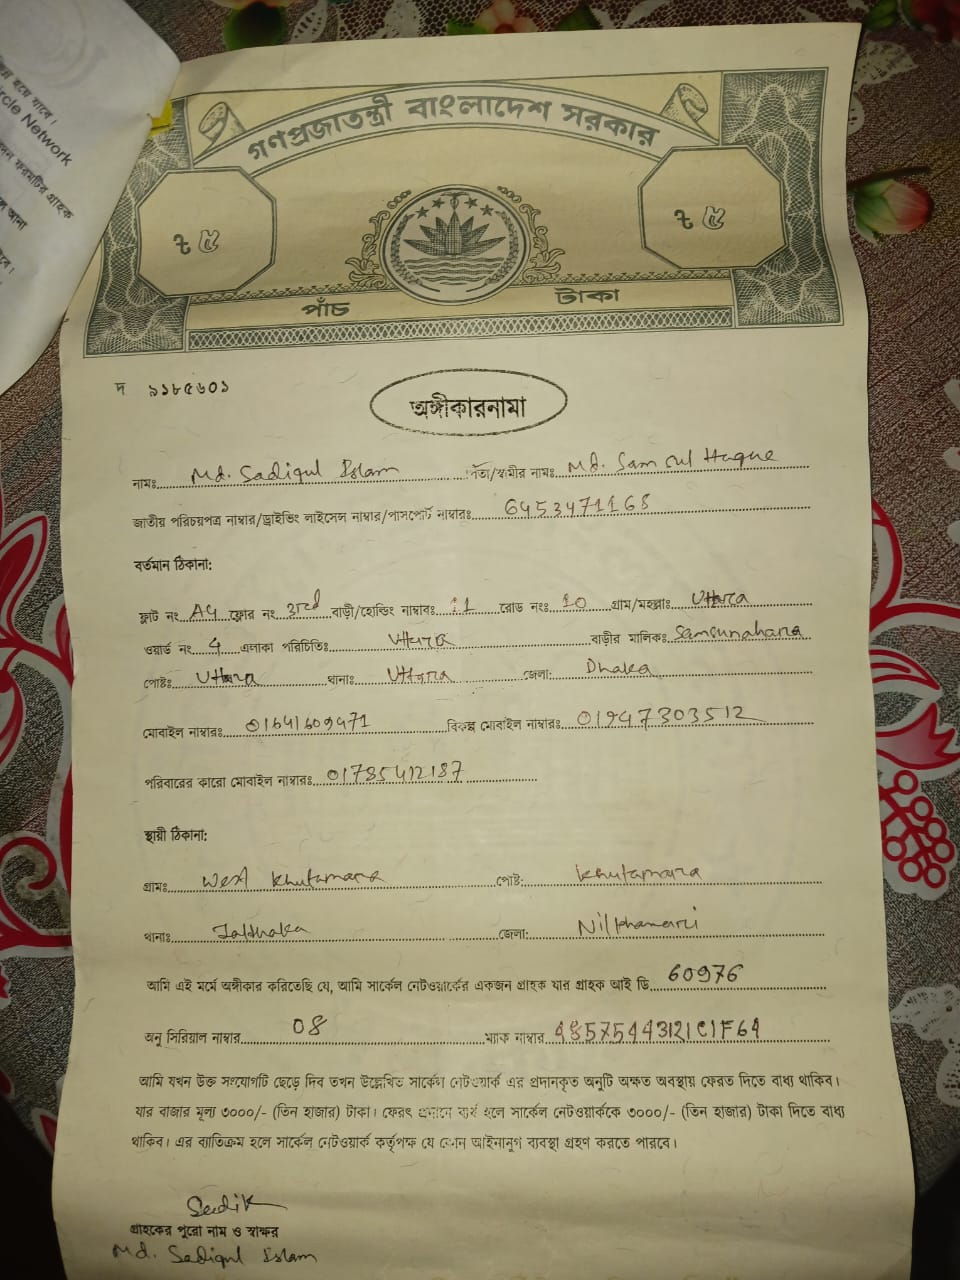 হয়ে যাবে।
rcle Network
ফরমটির গ্রাহক
আনা
গণপ্রজাতন্ত্রী বাংলাদেশ সরকার
৳ ৫ ৳ ৫
পাঁচ টাকা
দ ৯১৮৫৬০১
অঙ্গীকারনামা
নামঃ Md. Sadiqul Islam পিতা/স্বামীর নামঃ Md. Samsul Haque
জাতীয় পরিচয়পত্র নাম্বার/ড্রাইভিং লাইসেন্স নাম্বার/পাসপোর্ট নাম্বারঃ 6453471168
বর্তমান ঠিকানা:
ফ্লাট নং A4 ফ্লোর নং 3rd বাড়ী/হোল্ডিং নাম্বারঃ 11 রোড নংঃ 10 গ্রাম/মহল্লাঃ Uttara
ওয়ার্ড নং 4 এলাকা পরিচিতিঃ Uttara বাড়ীর মালিকঃ Samsunahara
পোষ্টঃ Uttara থানাঃ Uttara জেলা: Dhaka
মোবাইল নাম্বারঃ 01641609471 বিকল্প মোবাইল নাম্বারঃ 01947303512
পরিবারের কারো মোবাইল নাম্বারঃ 01785412187
স্থায়ী ঠিকানা:
গ্রামঃ West Khutamara পোষ্ট: Khutamara
থানাঃ Jaldhaka জেলা: Nilphamari
আমি এই মর্মে অঙ্গীকার করিতেছি যে, আমি সার্কেল নেটওয়ার্কের একজন গ্রাহক যার গ্রাহক আই ডি 60976
অনু সিরিয়াল নাম্বার 08 ম্যাক নাম্বার 48575443121C1F64
আমি যখন উক্ত সংযোগটি ছেড়ে দিব তখন উল্লেখিত সার্কেল নেটওয়ার্ক এর প্রদানকৃত অনুটি অক্ষত অবস্থায় ফেরত দিতে বাধ্য থাকিব।
যার বাজার মূল্য ৩০০০/- (তিন হাজার) টাকা। ফেরৎ প্রদানে ব্যর্থ হলে সার্কেল নেটওয়ার্ককে ৩০০০/- (তিন হাজার) টাকা দিতে বাধ্য
থাকিব। এর ব্যতিক্রম হলে সার্কেল নেটওয়ার্ক কর্তৃপক্ষ যে কোন আইনানুগ ব্যবস্থা গ্রহণ করতে পারবে।
Sadik
গ্রাহকের পুরো নাম ও স্বাক্ষর
Md. Sadiqul Islam